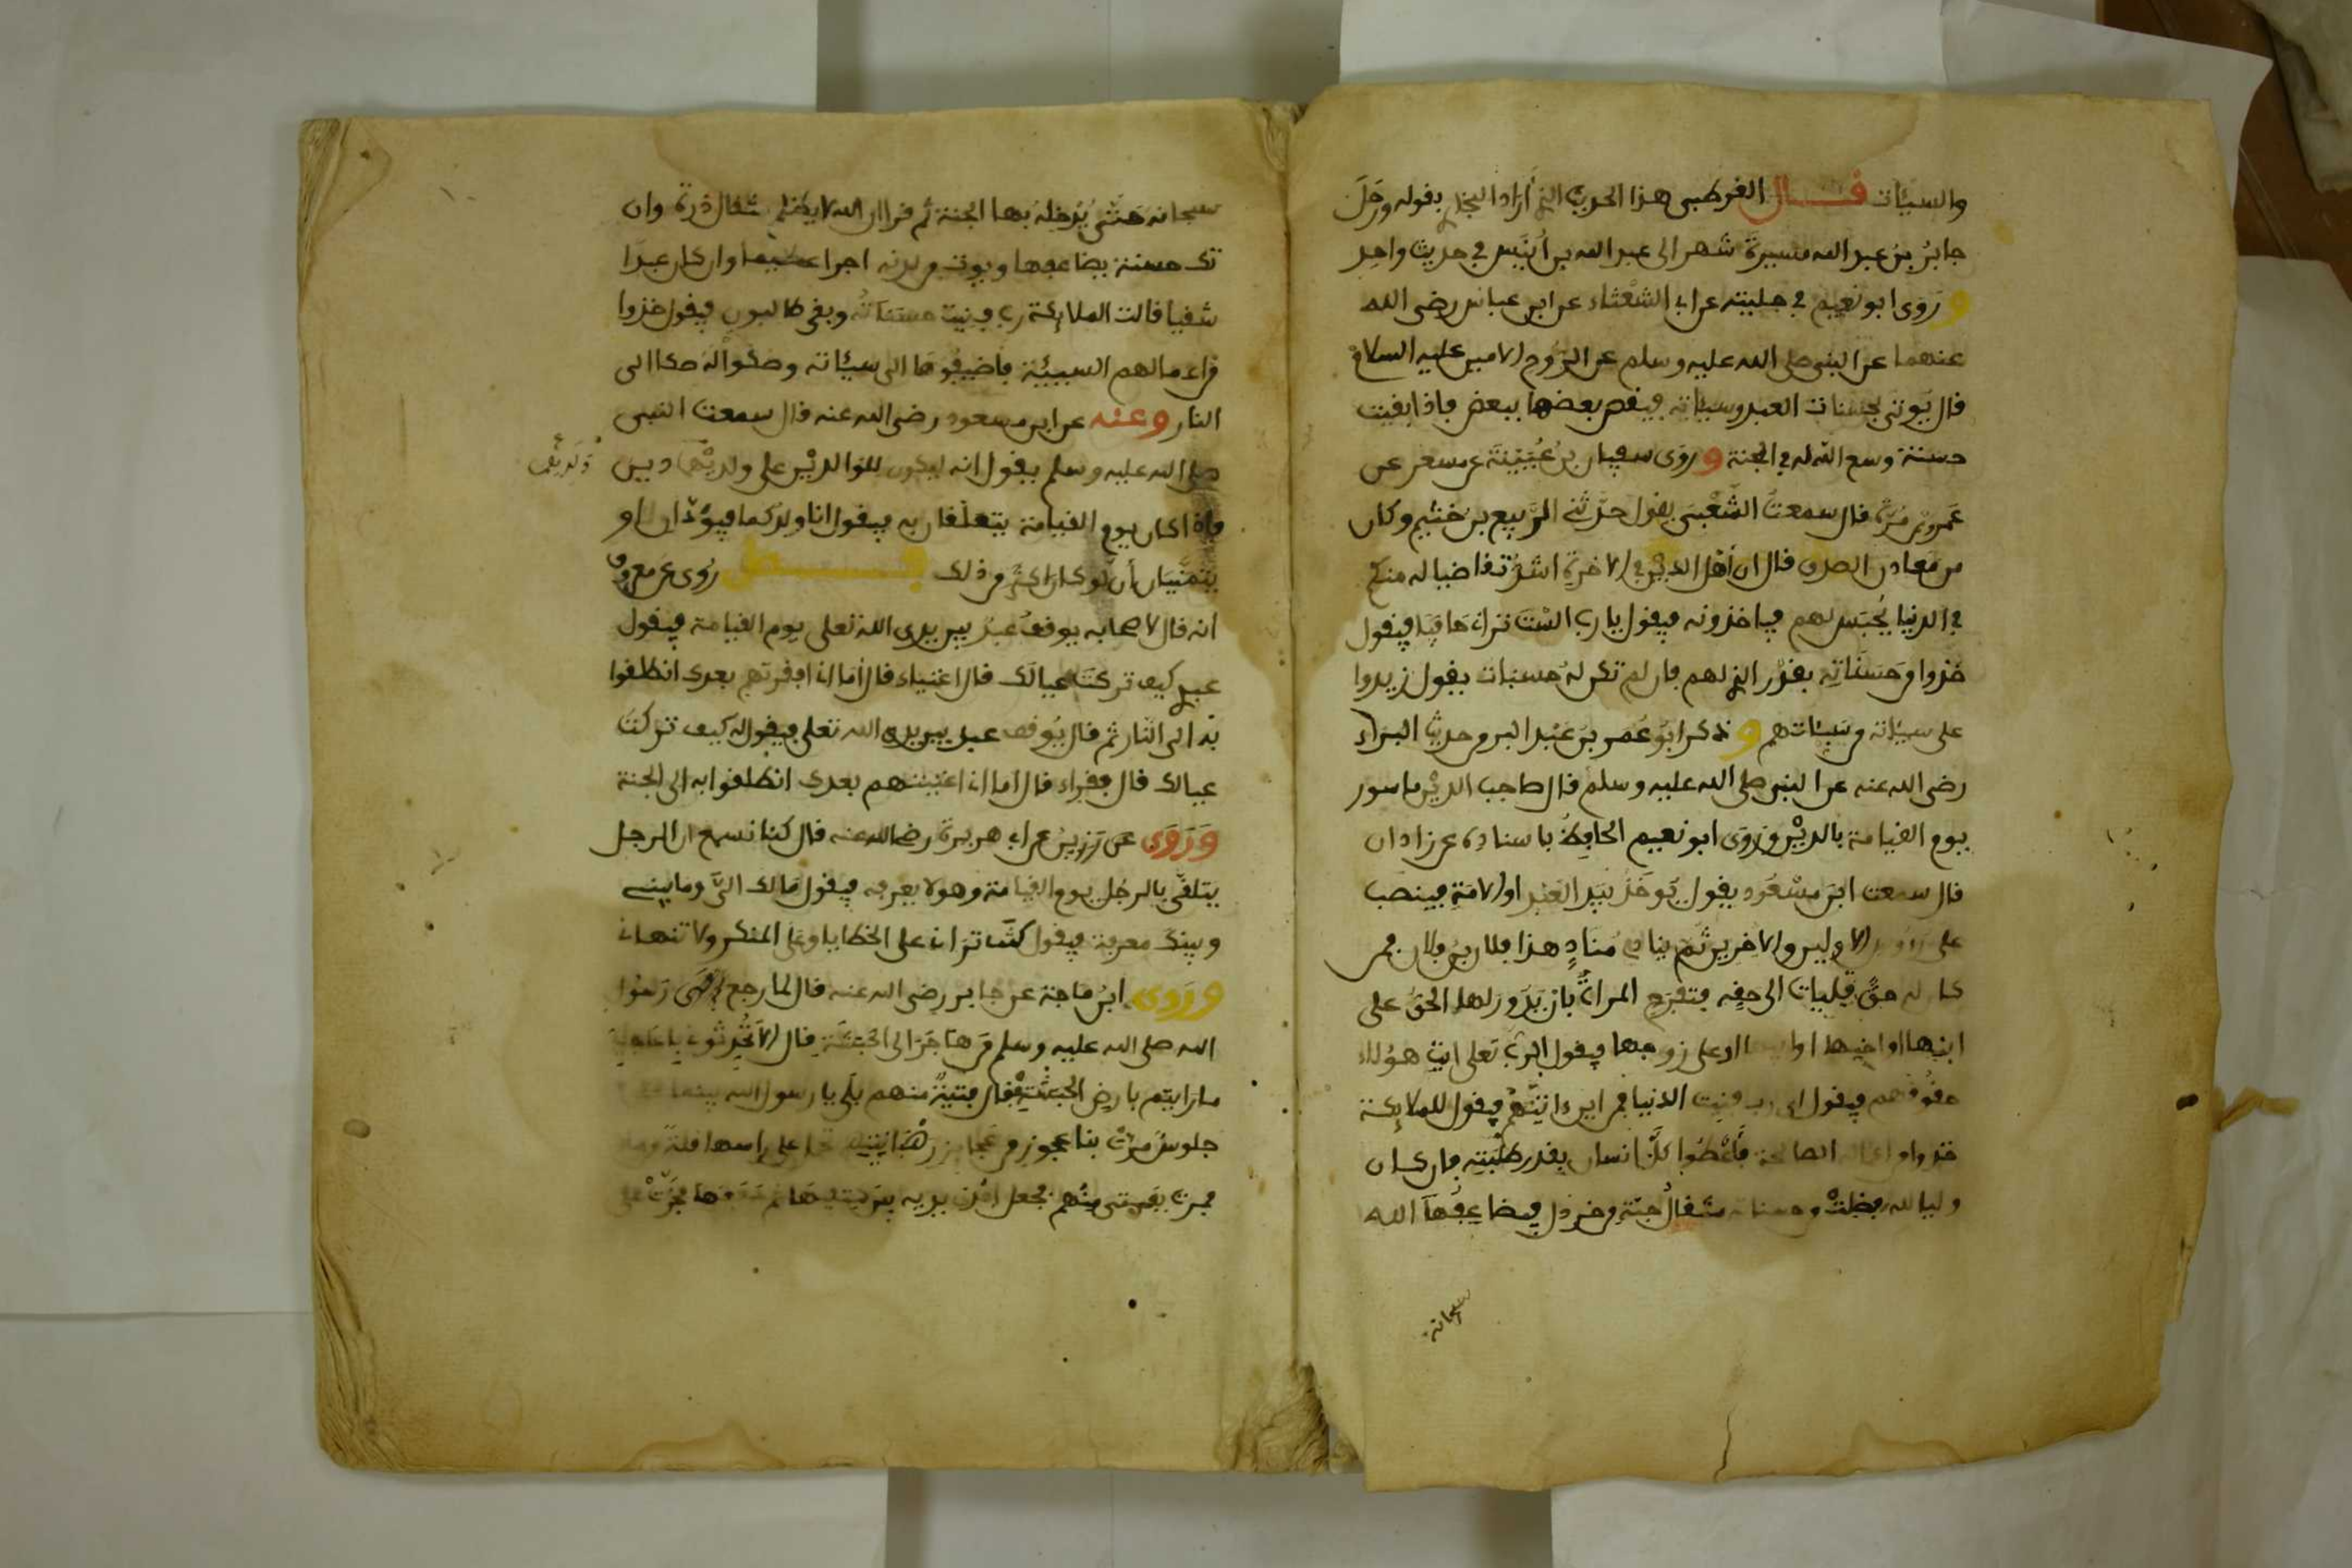 والسيئات قال القرطبي هذا الحديث الذي أراد البخاري بقوله ورحل
جابر بن عبد الله مسيرة شهر الى عبد الله بن أنيس في حديث واحد
وروى ابو نعيم في حليته عن ابي الشعثاء عن ابن عباس رضي الله
عنهما عن النبي صلى الله عليه وسلم عن الروح الامين عليه السلام
قال يوتى بحسنات العبد وسيئاته فيقص بعضها ببعض فاذا بقيت
حسنة وسع الله له في الجنة وروى سفيان بن عيينة عن مسعر عن
عمرو بن مرة قال سمعت الشعبي يقول حدثني الربيع بن خثيم وكان
من معادن الصدق قال ان أهل الدين في الاخرة اشد تقاضيا له منكم
في الدنيا يحبس لهم فياخذونه فيقول يا رب الست تراني حافيا فيقول
خذوا من حسناته بقدر الذي لهم فان لم تكن له حسنات يقول زيدوا
على سيئاته من سيئاتهم وذكر ابو عمر بن عبد البر من حديث البراء
رضي الله عنه عن النبي صلى الله عليه وسلم قال صاحب الدين ماسور
يوم القيامة بالدين وروى ابو نعيم الحافظ باسناده عن زاذان
قال سمعت ابن مسعود يقول يوخذ بيد العبد او الامة فينصب
على رءوس الاولين والاخرين ثم ينادي مناد هذا فلان بن فلان فمن
كان له حق فليات الى حقه فتفرح المراة بان يدور لها الحق على
ابنها او اخيها او ابيها او على زوجها فيقول الرب تعلى ايت هؤلاء
حقوقهم فيقول اي رب فنيت الدنيا فمن اين اتيهم فيقول للملائكة
خذوا من اعماله الصالحة فأعطوا كل انسان بقدر طلبته فان كان
وليا لله فضلت من حسناته مثقال حبة من خردل فيضاعفها الله
سبحانه
سبحانه حتى يدخله بها الجنة ثم قرا ان الله لا يظلم مثقال ذرة وان
تك حسنة يضاعفها ويوت من لدنه اجرا عظيما وان كان عبدا
شقيا قالت الملائكة رب فنيت حسناته وبقي طالبون فيقول خذوا
من اعمالهم السيئة فاضيفوها الى سيئاته وصكوا له صكا الى
النار وعنه عن ابن مسعود رضي الله عنه قال سمعت النبي
صلى الله عليه وسلم يقول انه ليكون للوالدين على ولديهما دين
فاذا كان يوم القيامة يتعلقان به فيقول انا ولدكما فيودان او
يتمنيان أن لو كان اكثر من ذلك فصل روي عن معروف
انه قال لاصحابه يوقف عبد بين يدي الله تعلى يوم القيامة فيقول
عبدي كيف تركت عيالك قال اغنياء قال أما اني افقرتهم بعدك انطلقوا
به الى النار ثم قال يوقف عبد بين يدي الله تعلى فيقول له كيف تركت
عيالك قال فقراء قال اما اني اغنيتهم بعدك انطلقوا به الى الجنة
وروى عن رزين عن ابي هريرة رضي الله عنه قال كنا نسمع ان الرجل
يتلقى بالرجل يوم القيامة وهو لا يعرفه فيقول مالك الي وما بيني
وبينك معرفة فيقول كنت تراني على الخطايا وعلى المنكر ولا تنهاني
وروى ابن ماجة عن جابر رضي الله عنه قال لما رجع الى رسول
الله صلى الله عليه وسلم من هاجر الى الحبشة قال الا تحدثوني باعاجيب
ما رايتم بارض الحبشة فقال فتية منهم بلى يا رسول الله بينما نحن
جلوس مرت بنا عجوز من عجايز رهابينهم تحمل على راسها قلة من ماء
فمرت بفتى منهم فجعل احدى يديه بين كتفيها ثم دفعها فخرت على